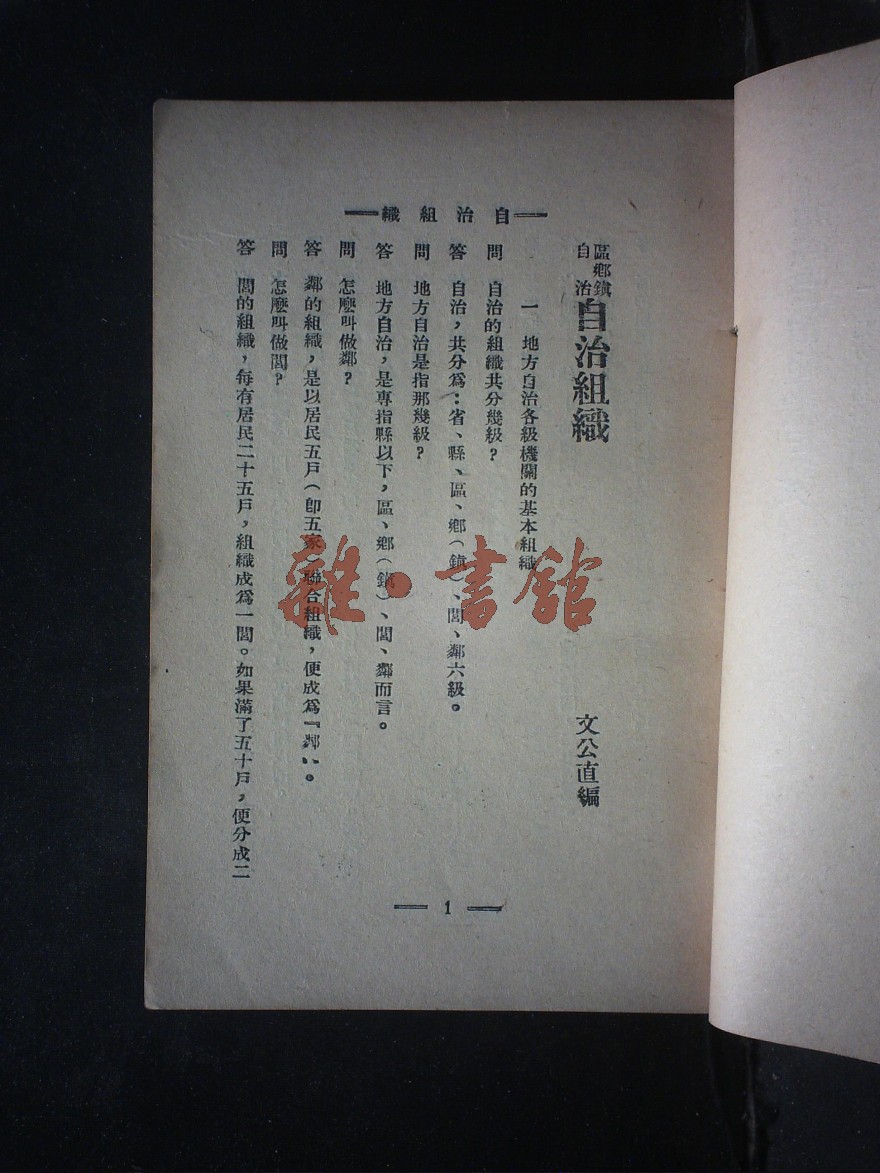 自治組織
區鄉鎮自治
自治組織
文公直編
一　地方自治各級機關的基本組織
問　自治的組織共分幾級？
答　自治，共分爲：省、縣、區、鄉（鎮）、閭、鄰六級。
問　地方自治是指那幾級？
答　地方自治，是專指縣以下，區、鄉（鎮）、閭、鄰而言。
問　怎麼叫做鄰？
答　鄰的組織，是以居民五戶（卽五家）聯合組織，便成爲『鄰』。
問　怎麼叫做閭？
答　閭的組織，每有居民二十五戶，組織成爲一閭。如果滿了五十戶，便分成二
1
雜·書館